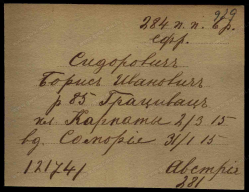 284 п. п. Ефр.
ефр.
Сидоровичъ
Борисъ Ивановичъ
р 85 Грацивацъ
пл. Карпаты 2/3 15
вд. Саторіе 31/1 15
121741 Австрія
281